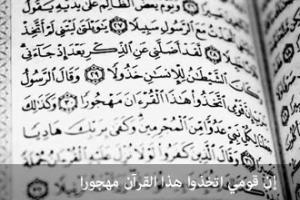 وَيَوْمَ يَعَضُّ الظَّالِمُ عَلَىٰ يَدَيْهِ
مَعَ الرَّسُولِ سَبِيلًا ٢٧ يَٰوَيْلَتَىٰ لَيْتَنِى لَمْ أَتَّخِذْ
لَّقَدْ أَضَلَّنِى عَنِ الذِّكْرِ بَعْدَ إِذْ جَآءَنِى
كَانَ الشَّيْطَٰنُ لِلْإِنسَٰنِ خَذُولًا ٢٩ وَقَالَ الرَّسُولُ
قَوْمِى اتَّخَذُوا هَٰذَا الْقُرْءَانَ مَهْجُورًا ٣٠ وَكَذَٰلِكَ
لِكُلِّ نَبِىٍّ عَدُوًّا مِّنَ الْمُجْرِمِينَ وَكَفَىٰ بِرَبِّكَ هَادِيًا
وَقَالَ الَّذِينَ كَفَرُوا لَوْلَا نُزِّلَ عَلَيْهِ الْقُرْءَانُ جُمْلَةً
إن قومي اتخذوا هذا القرآن مهجورا